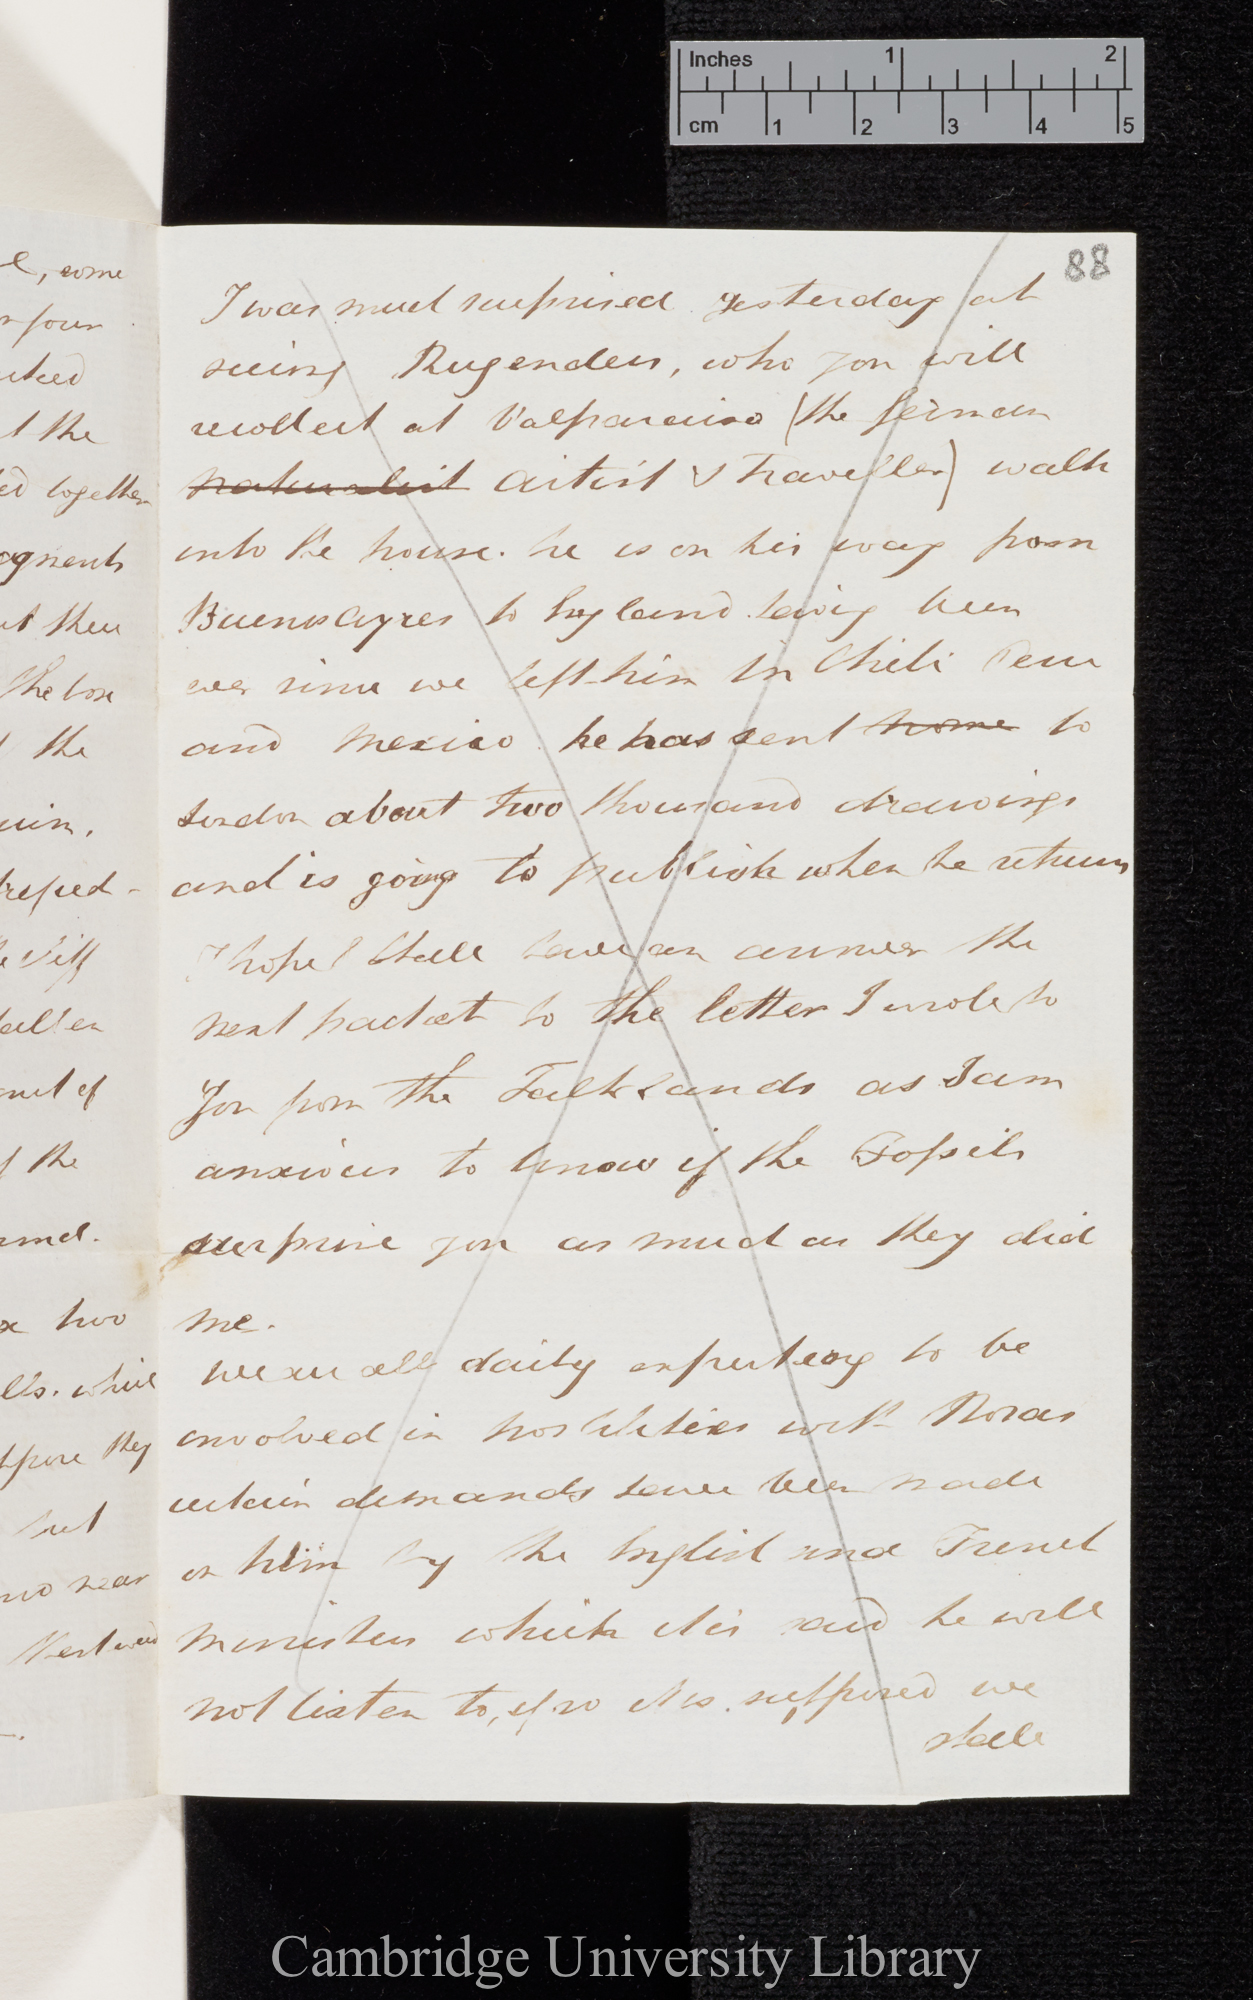 Inches 1 2
cm 1 2 3 4 5
88
e, come
r four
uked
t the
ed together
agments
ut these
the box
the
uin.
allen
of the
two
lls. while
they
but
no near
I was much surprised yesterday at
seeing Rugenders, who you will
recollect at Valparaiso (the german
naturalist artist & traveller) walk
into the house. he is on his way from
Buenos Ayres to England having been
ever since we left him in Chili Peru
and Mexico he has sent home to
London about two thousand drawings
and is going to publish when he returns
I hope I shall have an answer the
next packet to the letter I wrote to
You from the Falklands as I am
anxious to know if the Fossils
surprise you as much as they did
me.
We are all daily expecting to be
involved in hostilities with Rosas
certain demands have been made
on him by the English and French
Ministers which it is said he will
not listen to, if so it is supposed we
shall
Cambridge University Library